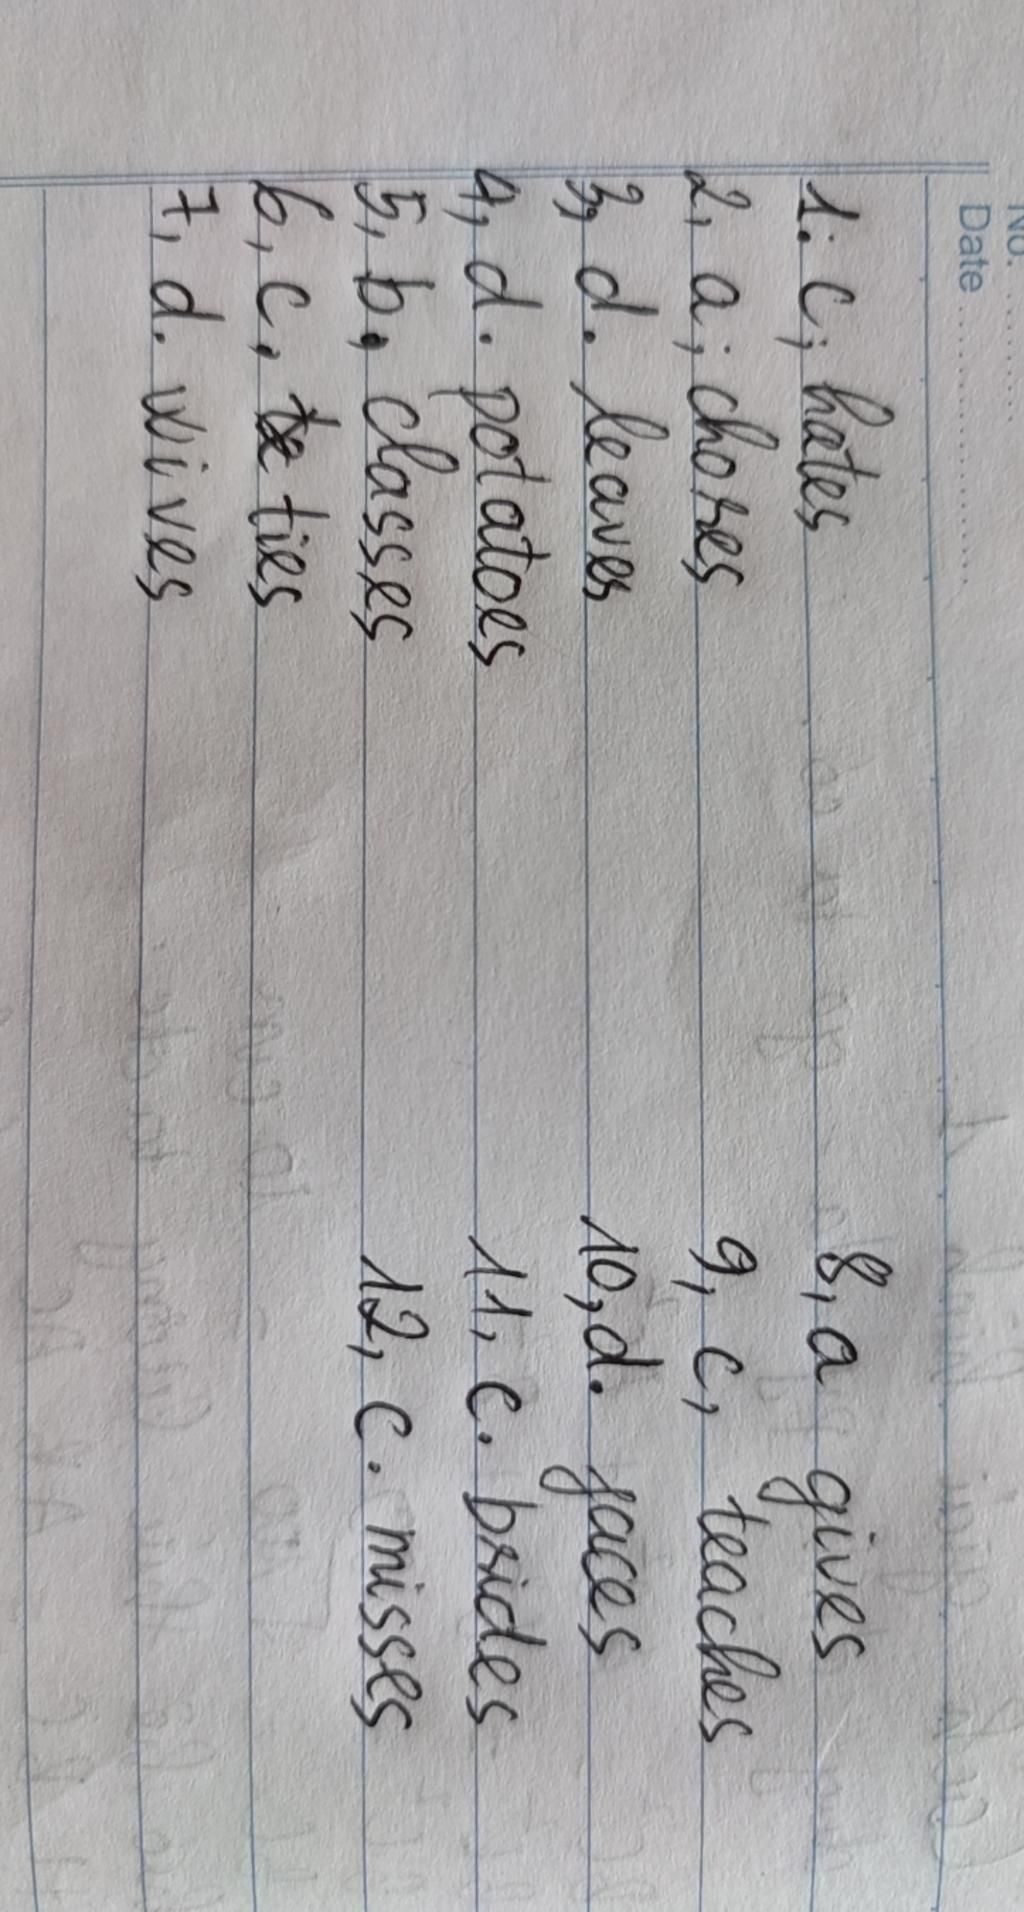 No. ............
Date ........................
1. c, hates
2, a, chores
3, d. leaves
4, d. potatoes
5, b, classes
6, c, ties
7, d. wives
8, a gives
9, c, teaches
10, d. faces
11, c. brides
12, c. misses